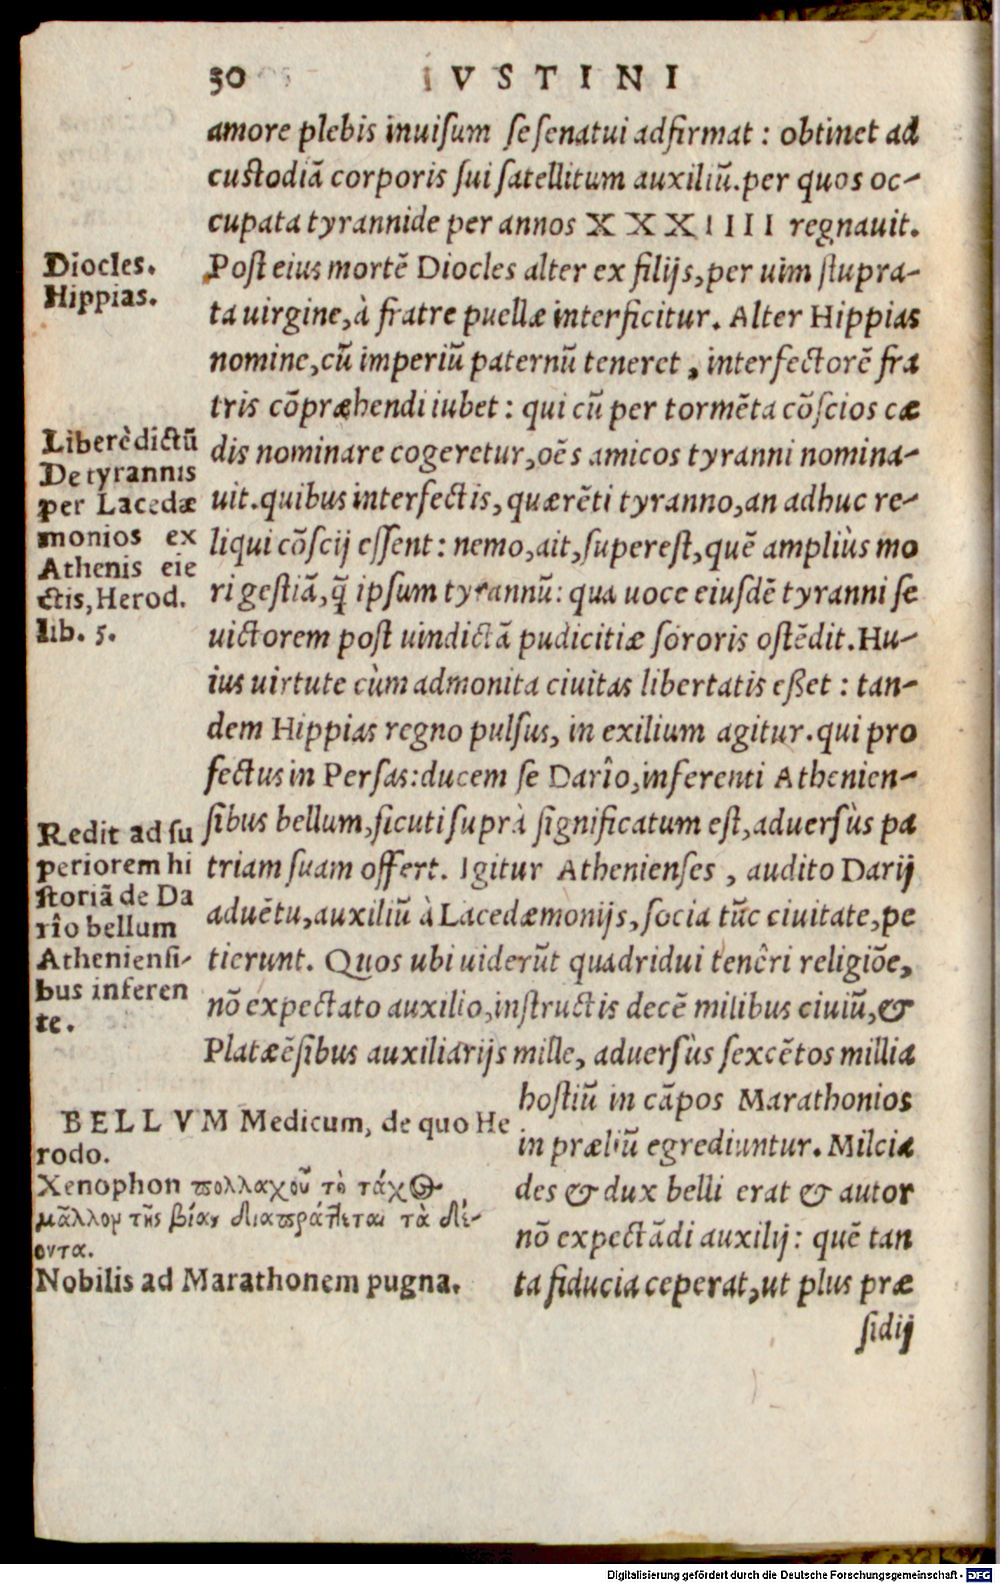 50 IVSTINI
amore plebis inuisum se senatui adfirmat : obtinet ad
custodiā corporis sui satellitum auxiliū.per quos oc-
cupata tyrannide per annos XXXIIII regnauit.
Post eius mortē Diocles alter ex filijs,per uim stupra-
ta uirgine,à fratre puellæ interficitur. Alter Hippias
nomine,cū imperiū paternū teneret , interfectorē fra
tris cōpræhendi iubet : qui cū per tormēta cōscios cæ
dis nominare cogeretur,oēs amicos tyranni nomina-
uit.quibus interfectis,quærēti tyranno,an adhuc re-
liqui cōscij essent: nemo,ait,superest,quē ampliùs mo
ri gestiā,q̄ ipsum tyrannū: qua uoce eiusdē tyranni se
uictorem post uindictā pudicitiæ sororis ostēdit.Hu-
ius uirtute cùm admonita ciuitas libertatis eßet : tan-
dem Hippias regno pulsus, in exilium agitur.qui pro
fectus in Persas:ducem se Darîo,inferenti Athenien-
sibus bellum,sicuti suprà significatum est,aduersùs pa
triam suam offert. Igitur Athenienses , audito Darij
aduētu,auxiliū à Lacedæmonijs,socia tūc ciuitate,pe
tierunt. Quos ubi uiderūt quadridui tenêri religiōe,
nō expectato auxilio,instructis decē milibus ciuiū,&
Platæēsibus auxiliarijs mille, aduersùs sexcētos millia
hostiū in cāpos Marathonios
in præliū egrediuntur. Milcia
des & dux belli erat & autor
nō expectādi auxilij: quē tan
ta fiducia ceperat,ut plus præ
sidij
Diocles.
Hippias.
Liberè dictū
De tyrannis
per Lacedæ
monios ex
Athenis eie
ctis,Herod.
lib. 5.
Redit ad su
periorem hi
storiā de Da
rîo bellum
Atheniensi-
bus inferen
te.
BELLVM Medicum, de quo He
rodo.
Xenophon πολλαχοῦ τὸ τάχος
μᾶλλον τῆς βίας διαπράττεται τὰ δέ-
οντα.
Nobilis ad Marathonem pugna.
Digitalisierung gefördert durch die Deutsche Forschungsgemeinschaft - DFG